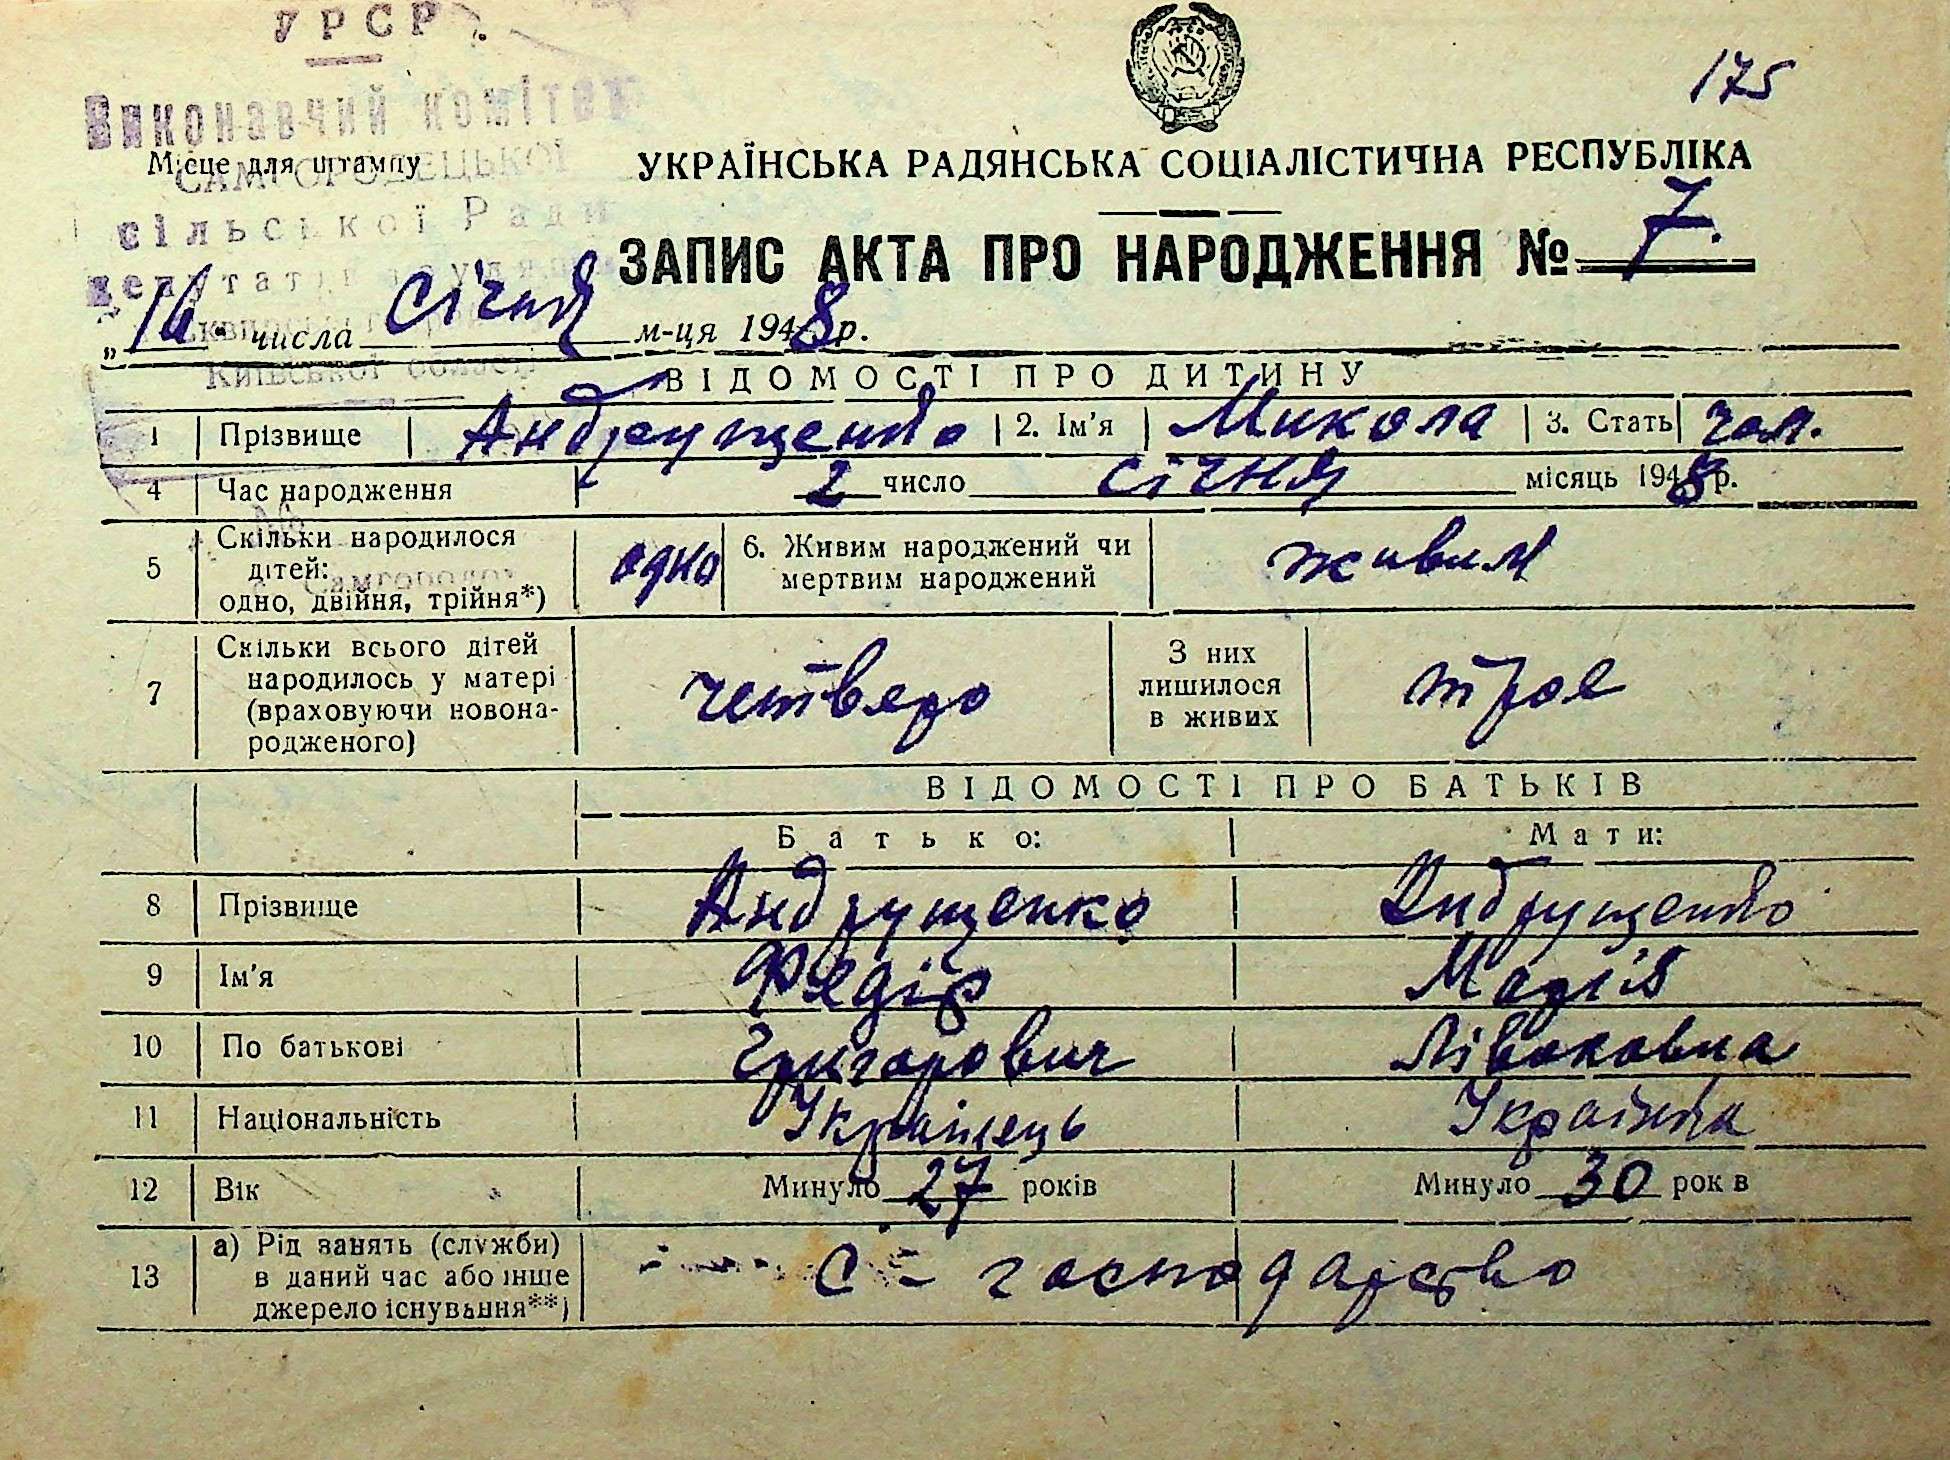 УРСР.
175
Виконавчий комітет
Місце для штампу
САМГОРОДЕЦЬКОЇ
УКРАЇНСЬКА РАДЯНСЬКА СОЦІАЛІСТИЧНА РЕСПУБЛІКА
сільської Ради
ЗАПИС АКТА ПРО НАРОДЖЕННЯ № 7.
депутатів
„16“ числа січня м-ця 1948 р.
Київської області
ВІДОМОСТІ ПРО ДИТИНУ
1 Прізвище Андрущенко 2. Ім'я Микола 3. Стать чол.
4 Час народження 2 число січня місяць 1948 р.
5 Скільки народилося
дітей:
одно, двійня, трійня*)
одно
6. Живим народжений чи
мертвим народжений
живим
7 Скільки всього дітей
народилось у матері
(враховуючи новона-
родженого)
четверо
З них
лишилося
в живих
троє
ВІДОМОСТІ ПРО БАТЬКІВ
Батько: Мати:
8 Прізвище Андрущенко Андрущенко
9 Ім'я Федір Марія
10 По батькові Григорович
11 Національність Українець Українка
12 Вік Минуло 27 років Минуло 30 рок в
13 а) Рід занять (служби)
в даний час або інше
джерело існування**)
с - господарство